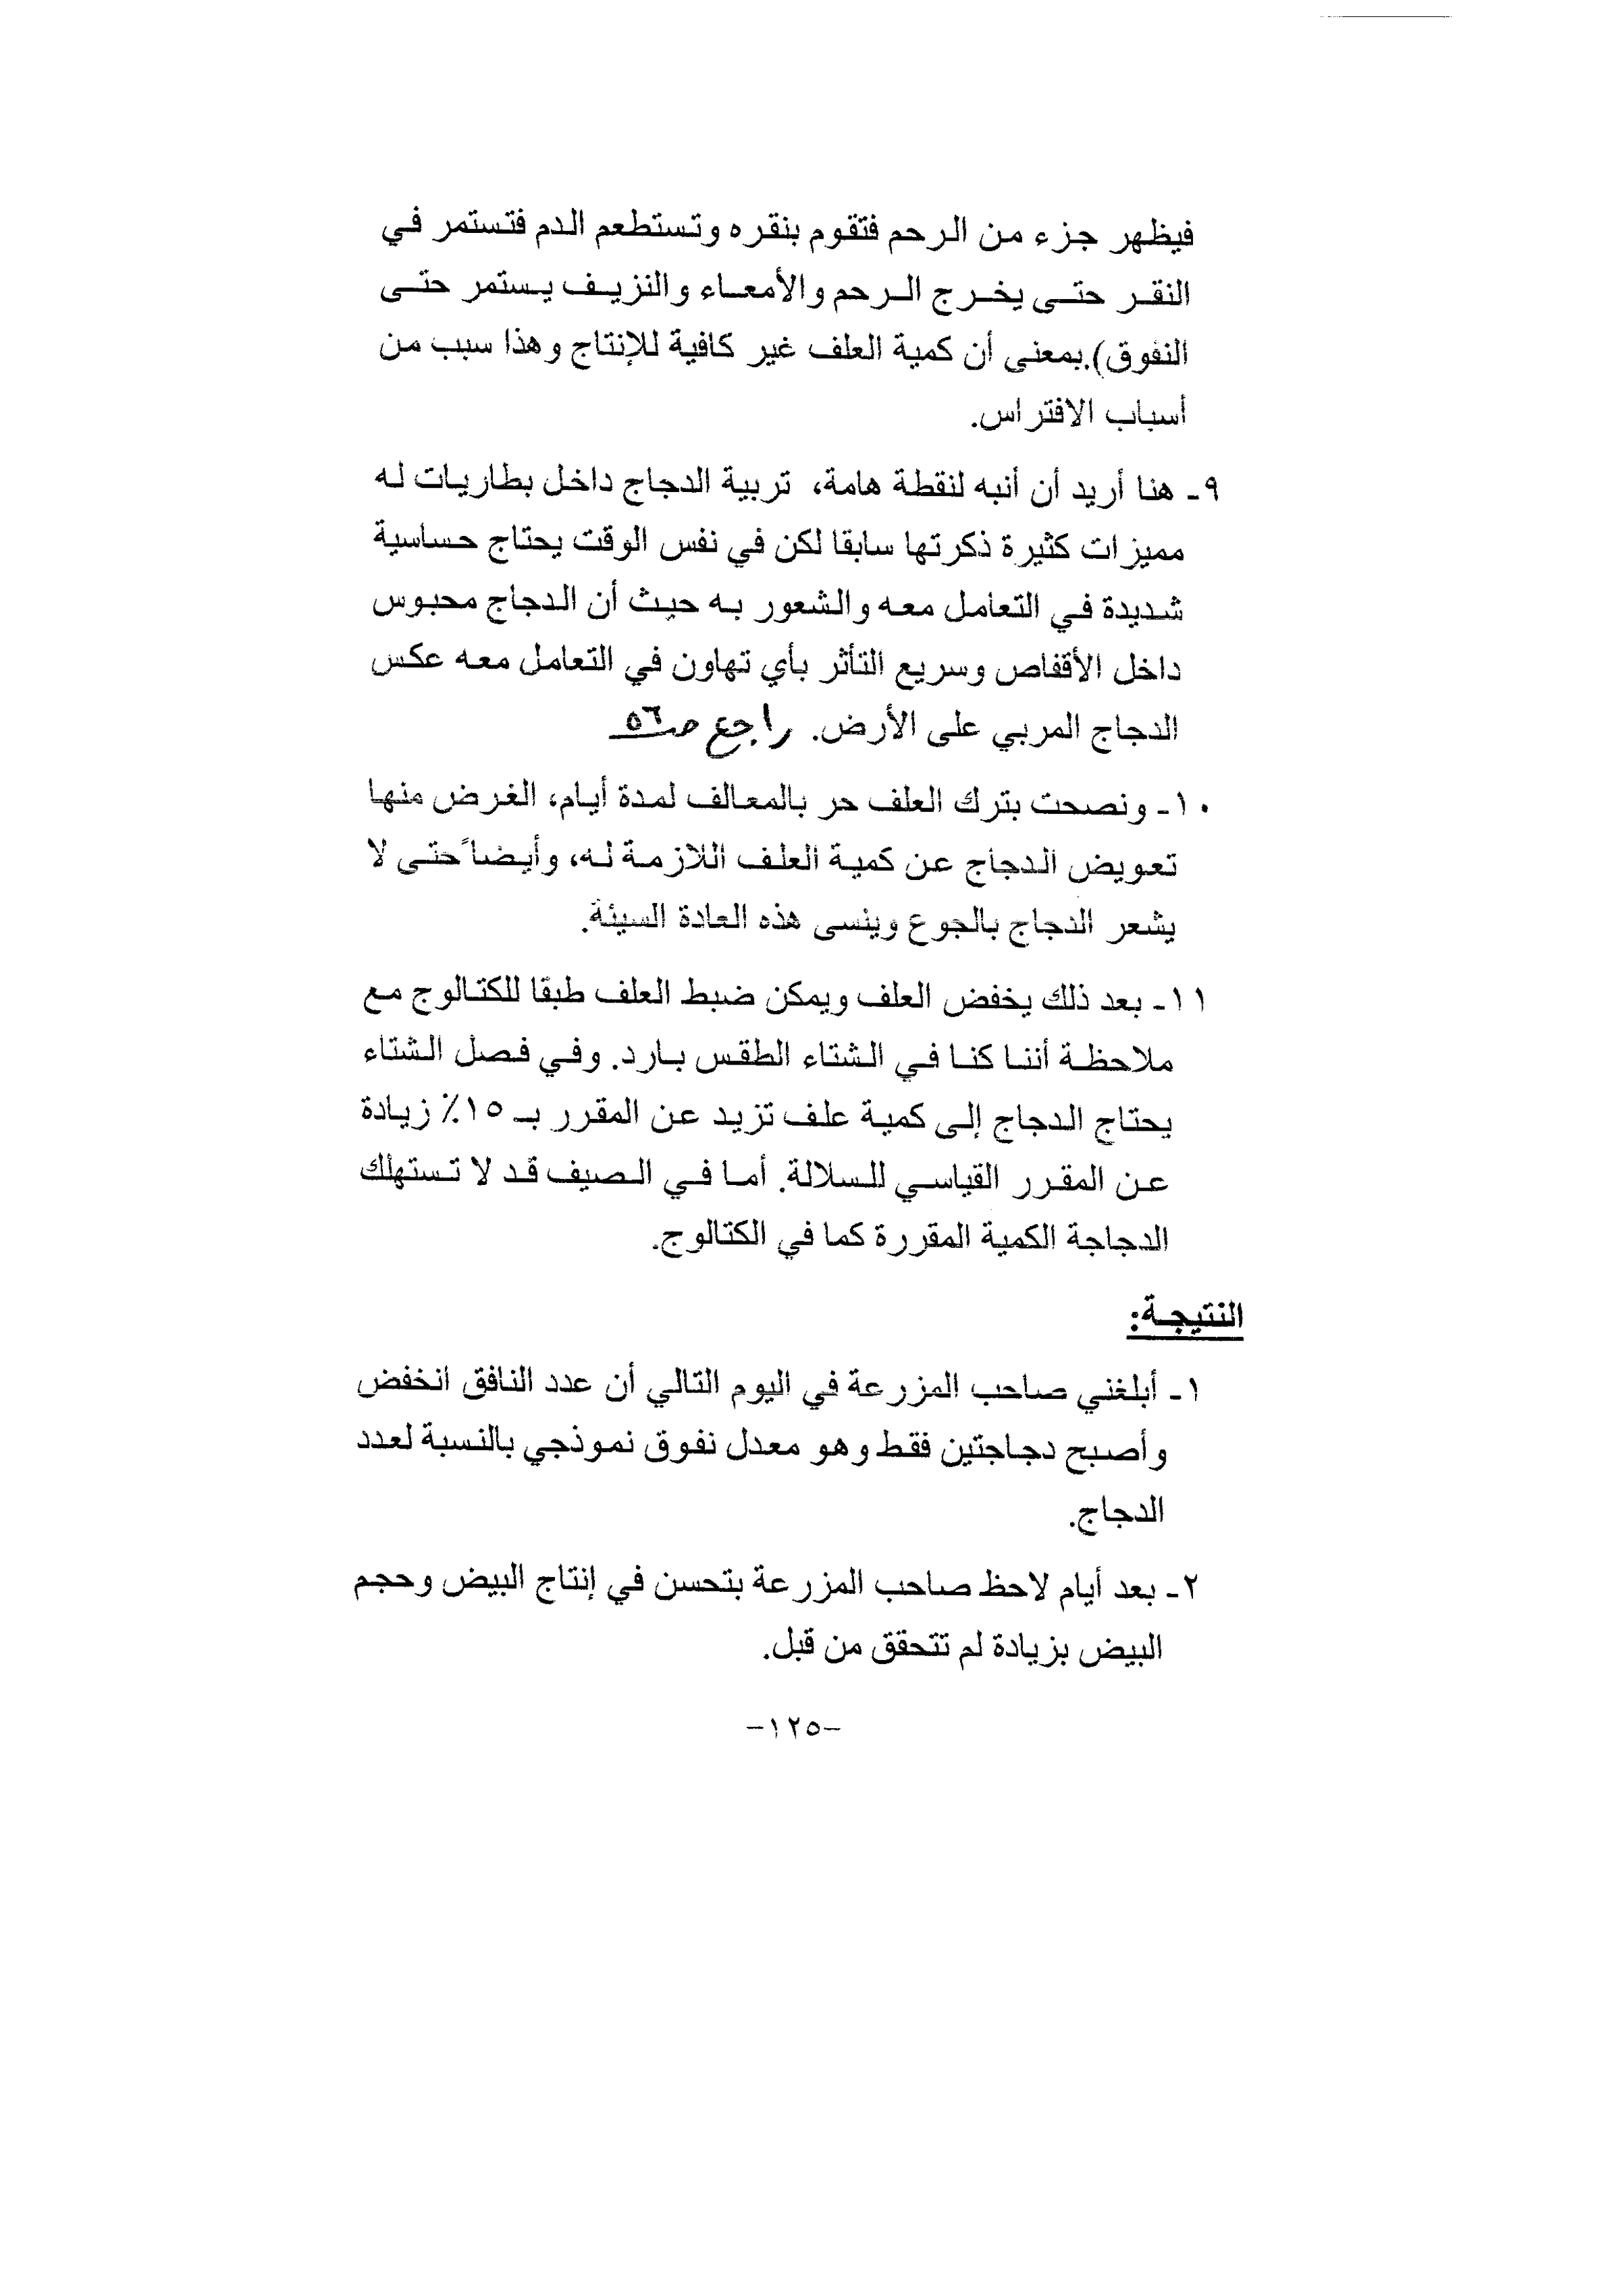 فيظهر جزء من الرحم فتقوم بنقره وتستطعم الدم فتستمر في
النقر حتى يخرج الرحم والأمعاء والنزيف يستمر حتى
النفوق).بمعنى أن كمية العلف غير كافية للإنتاج وهذا سبب من
أسباب الافتراس.
٩- هنا أريد أن أنبه لنقطة هامة، تربية الدجاج داخل بطاريات له
مميزات كثيرة ذكرتها سابقا لكن في نفس الوقت يحتاج حساسية
شديدة في التعامل معه والشعور به حيث أن الدجاج محبوس
داخل الأقفاص وسريع التأثر بأي تهاون في التعامل معه عكس
الدجاج المربي على الأرض. راجع ص٥٦
١٠- ونصحت بترك العلف حر بالمعالف لمدة أيام، الغرض منها
تعويض الدجاج عن كمية العلف اللازمة له، وأيضاً حتى لا
يشعر الدجاج بالجوع وينسى هذه العادة السيئة.
١١- بعد ذلك يخفض العلف ويمكن ضبط العلف طبقا للكتالوج مع
ملاحظة أننا كنا في الشتاء الطقس بارد. وفي فصل الشتاء
يحتاج الدجاج إلى كمية علف تزيد عن المقرر بـ ١٥٪ زيادة
عن المقرر القياسي للسلالة. أما في الصيف قد لا تستهلك
الدجاجة الكمية المقررة كما في الكتالوج.
النتيجة:
١- أبلغني صاحب المزرعة في اليوم التالي أن عدد النافق انخفض
وأصبح دجاجتين فقط وهو معدل نفوق نموذجي بالنسبة لعدد
الدجاج.
٢- بعد أيام لاحظ صاحب المزرعة بتحسن في إنتاج البيض وحجم
البيض بزيادة لم تتحقق من قبل.
-١٢٥-